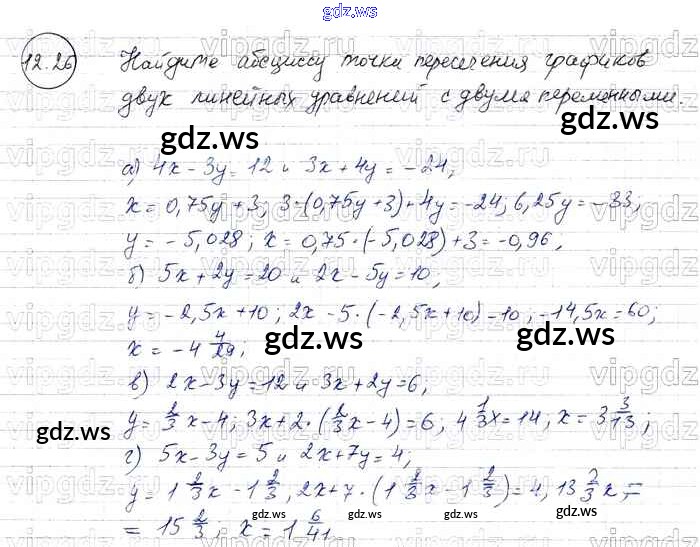 gdz.ws
12.26 Найдите абсциссу точки пересечения графиков
двух линейных уравнений с двумя переменными.
gdz.ws
gdz.ws
а) 4x - 3y = 12 и 3x + 4y = -24;
x = 0,75y + 3; 3·(0,75y + 3) + 4y = -24; 6,25y = -33;
y = -5,028; x = 0,75·(-5,028) + 3 = -0,96;
б) 5x + 2y = 20 и 2x - 5y = 10;
y = -2,5x + 10; 2x - 5·(-2,5x + 10) - 10; -14,5x = 60;
gdz.ws
gdz.ws
x = -4 4/29;
в) 2x - 3y = 12 и 3x + 2y = 6;
y = 2/3 x - 4; 3x + 2·(2/3 x - 4) = 6; 4 1/3 x = 14; x = 3 3/13;
gdz.ws
gdz.ws
г) 5x - 3y = 5 и 2x + 7y = 4;
y = 1 2/3 x - 1 2/3; 2x + 7·(1 2/3 x - 1 2/3) = 4; 13 2/3 x =
= 15 2/3; x = 1 6/41.
gdz.ws
gdz.ws